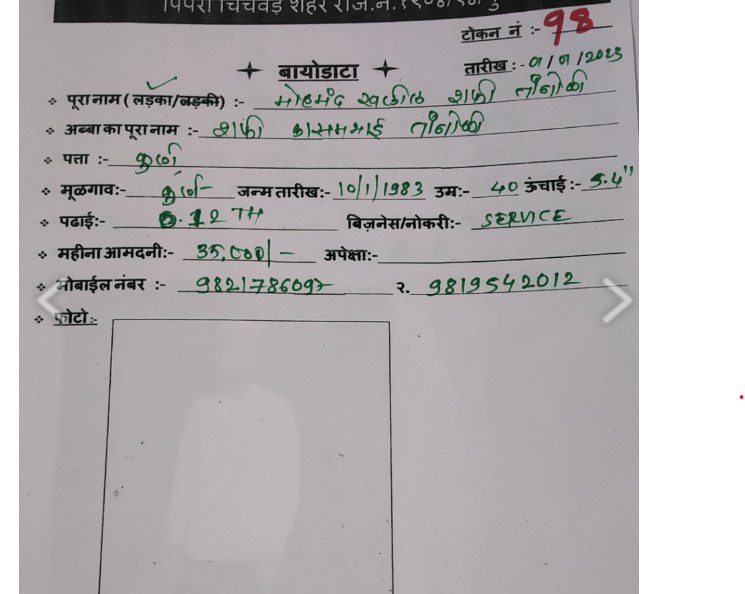 पिंपरी चिंचवड शहर
टोकन नं :- 98
बायोडाटा
तारीख :- 01/01/2023
पूरा नाम ( लड़का/लड़की) :- मोहमंद खलील शफी तांबोळी
अब्बा का पूरा नाम :- शफी कासमभाई तांबोळी
पत्ता :- कुर्ला
मूळगाव:- कुर्ला जन्म तारीख:- 10/1/1983 उम्र:- 40 ऊंचाई :- 5.4"
पढाई:- 12TH बिज़नेस/नोकरी:- SERVICE
महीना आमदनी:- 35,000/- अपेक्षा:-
मोबाईल नंबर :- 9821786097 २. 9819542012
फ़ोटो:-